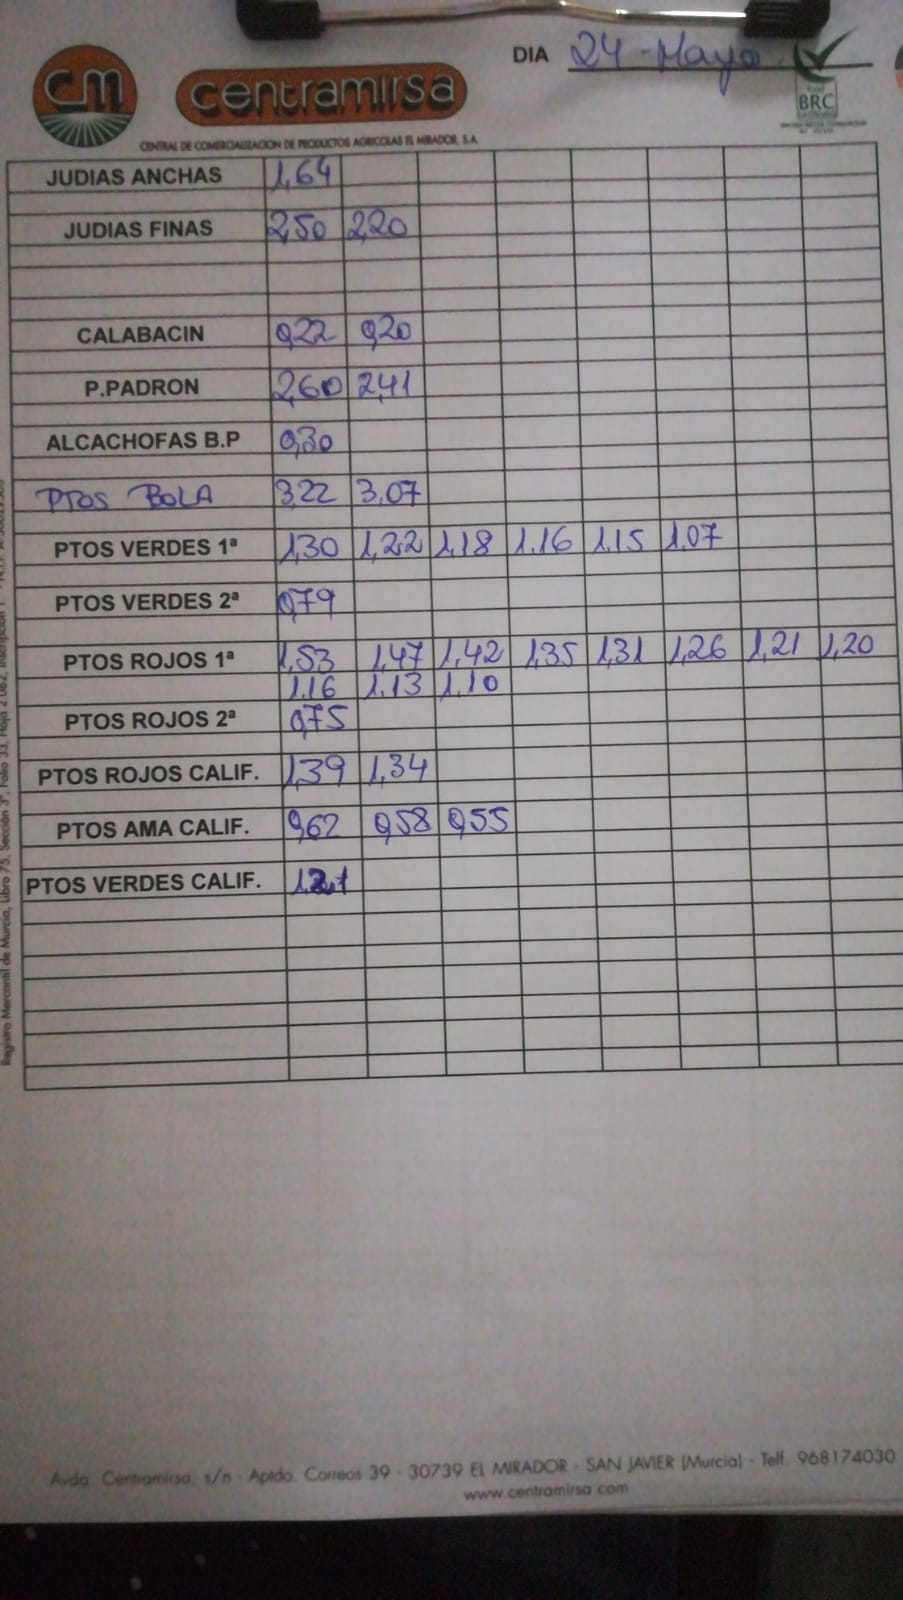 DIA 24-Mayo
CM centramirsa
BRC
CENTRAL DE COMERCIALIZACION DE PRODUCTOS AGRICOLAS EL MIRADOR, S.A.
JUDIAS ANCHAS 1,64
JUDIAS FINAS 2,50 2,20
CALABACIN 0,22 0,20
P.PADRON 2,60 2,41
ALCACHOFAS B.P 0,30
PTOS BOLA 3,22 3,07
PTOS VERDES 1ª 1,30 1,22 1,18 1.16 1.15 1.07
PTOS VERDES 2ª 0,79
PTOS ROJOS 1ª 1,53 1,47 1,42 1,35 1,31 1,26 1,21 1,20
1,16 1.13 1.10
PTOS ROJOS 2ª 0,75
PTOS ROJOS CALIF. 1,39 1,34
PTOS AMA CALIF. 0,62 0,58 0,55
PTOS VERDES CALIF.
Registro Mercantil de Murcia, Libro 75, Sección 3ª, Folio 33, Hoja 2.062, Inscripción 1ª
Avda. Centramirsa, s/n - Aptdo. Correos 39 - 30739 EL MIRADOR - SAN JAVIER (Murcia) - Telf. 968174030
www.centramirsa.com